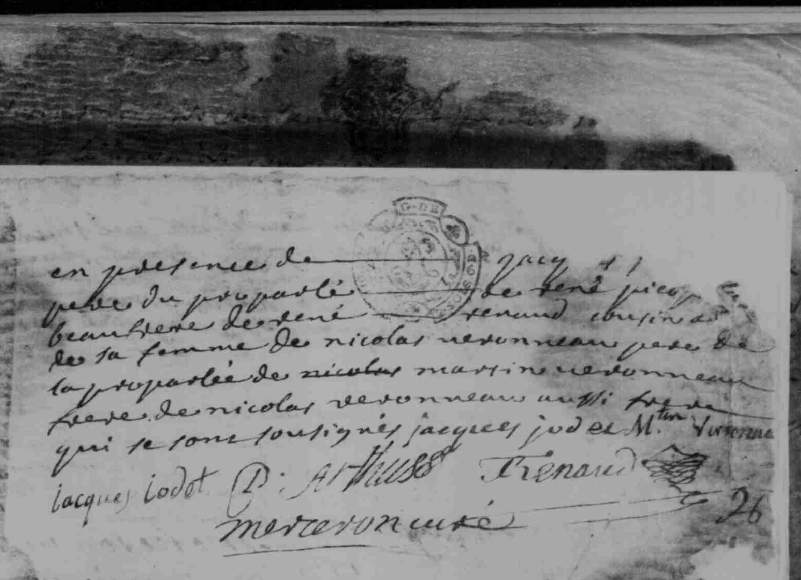 en presence de jacq
pere du proparlé de rené picq
beaufrere de rené renaud cousin
de sa femme de nicolas veronneau pere de
la proparlée de nicolas marsin veronneau
frere de nicolas veronneau aussi frere
qui se sont sousignés jacques jodet M.tin Veronneau
jacques iodet P: Arthuss Renaud
merceron curé
26